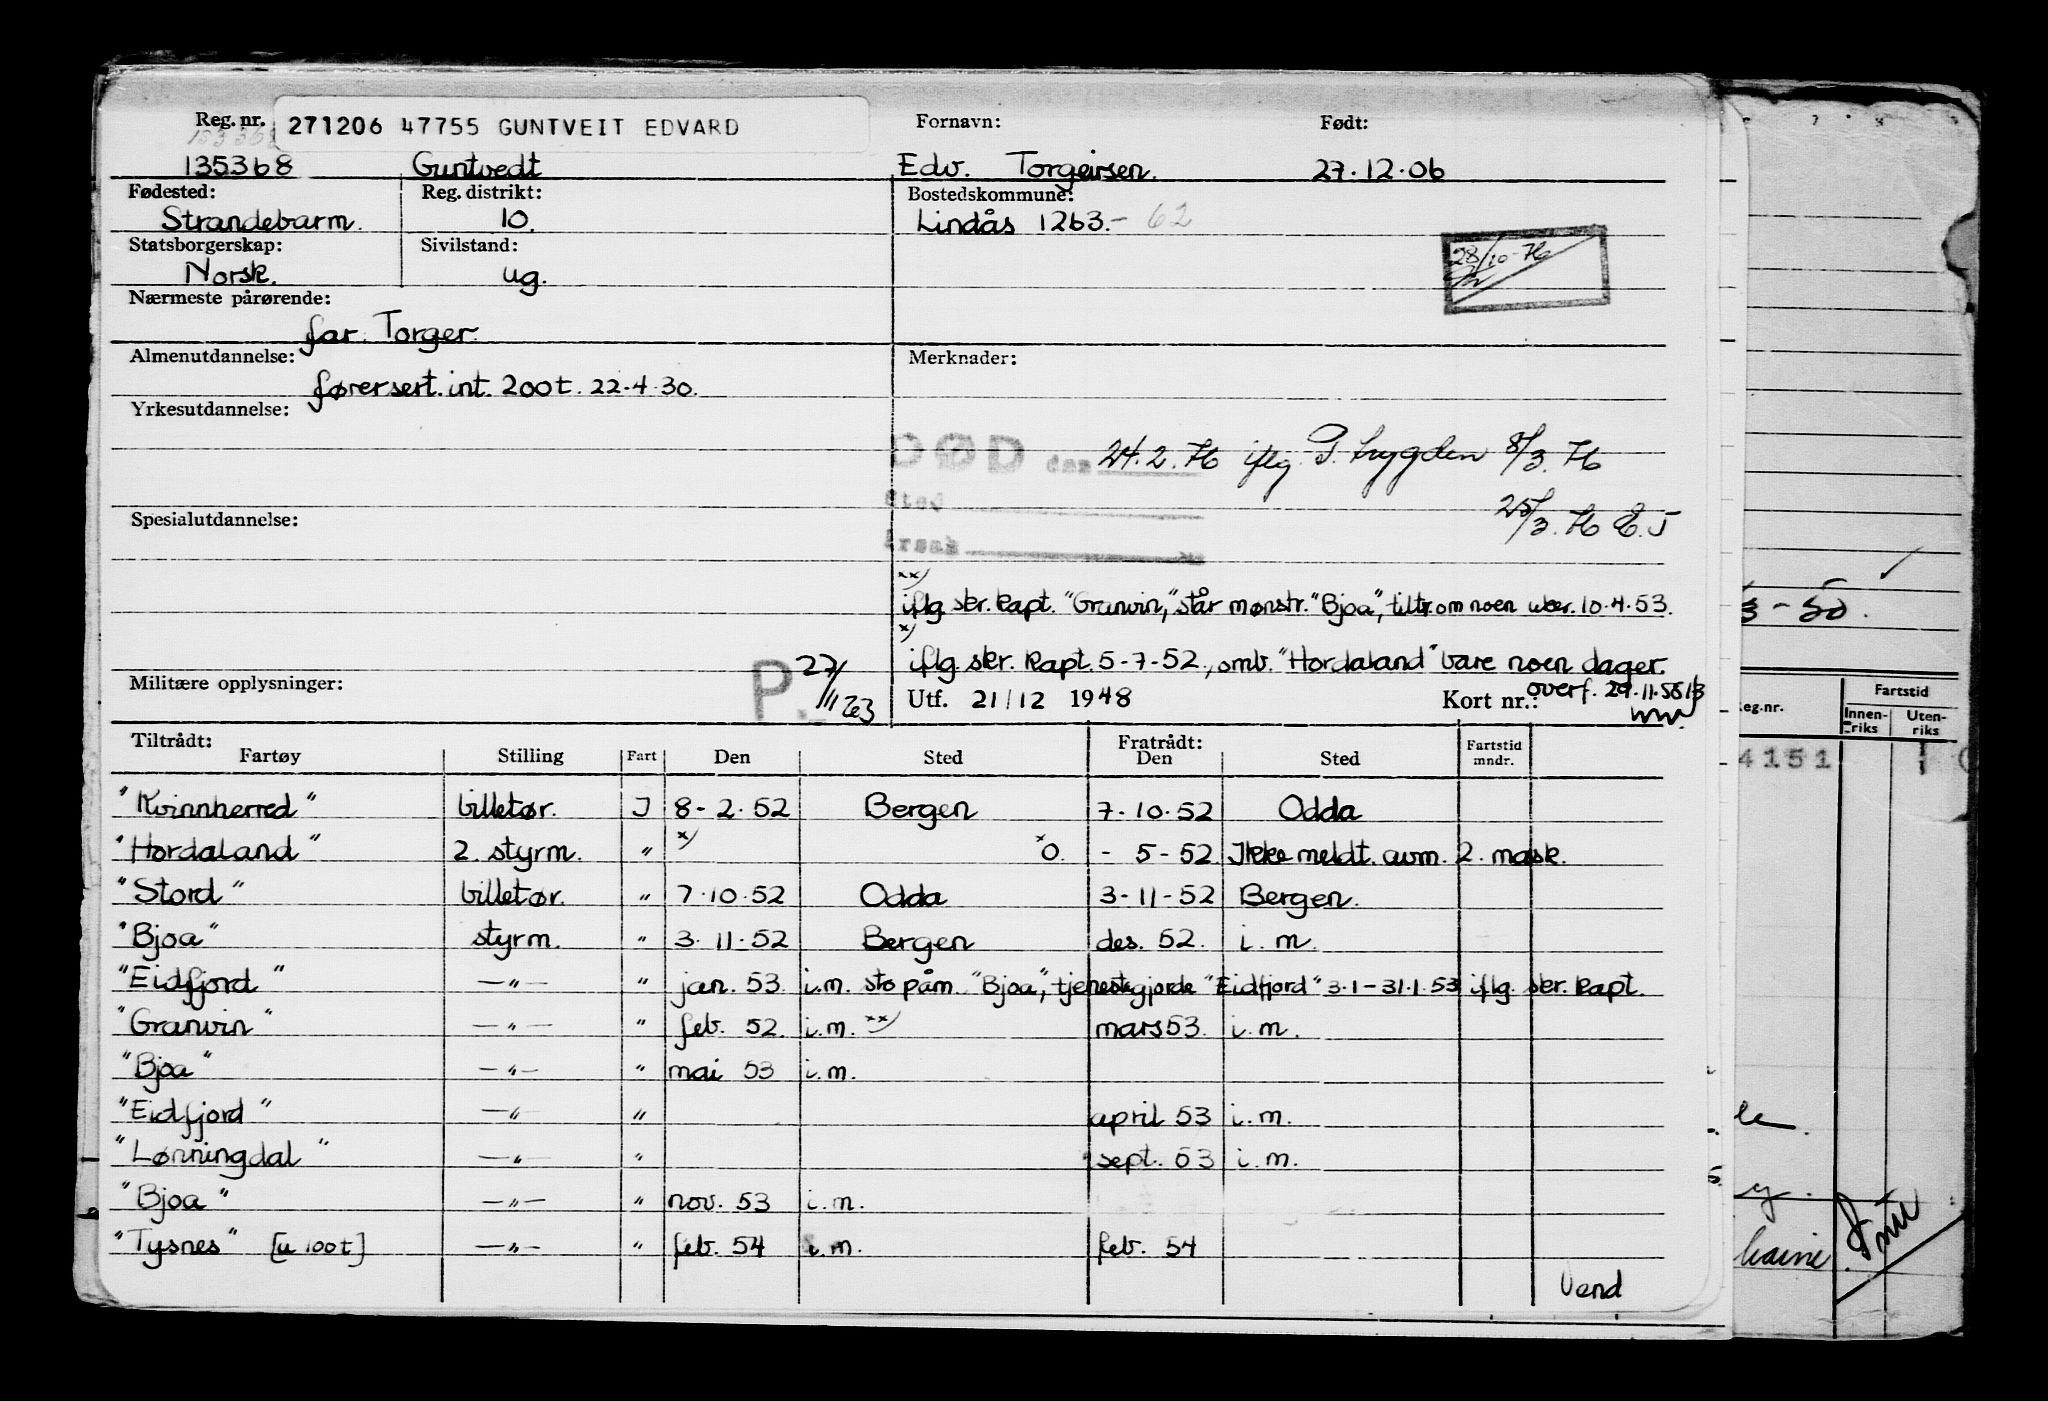 Reg. nr. 271206 47755 GUNTVEIT EDVARD Fornavn: Født:
135368 Guntvedt Edv. Torgeirsen. 27.12.06
Fødested: Reg. distrikt: Bostedskommune:
Strandebarm. 10. Lindås 1263.- 62
Statsborgerskap: Sivilstand:
Norsk. ug. 28/10-76
Nærmeste pårørende:
far. Torger.
Almenutdannelse: Merknader:
førersert. int. 200t. 22.4.30.
Yrkesutdannelse:
DØD den 24.2.76 iflg. P. trygden 8/3.76
Sted
25/3.76 E.J
Spesialutdannelse:
Årsak
xx)
iflg skr. kapt. "Granvin," står mønstr. "Bjoa", tiltr. om noen uker. 10.4.53.
x)
iflg. skr. kapt. 5-7-52., omb. "Hordaland" bare noen dager.
Militære opplysninger: P. 27/11 63 Utf. 21/12 1948 Kort nr.: overf. 29.11.55
Tiltrådt: Fratrådt:
Fartøy Stilling Fart Den Sted Den Sted Fartstid mndr.
"Kvinnherred" billetør. I 8-2.52 Bergen 7-10.52 Odda
"Hordaland" 2. styrm. " x) x O. - 5-52 Ikke meldt. avm. 2. mask.
"Stord" billetør. " 7.10.52 Odda 3-11-52 Bergen.
"Bjoa" styrm. " 3.11.52 Bergen des. 52. i.m.
"Eidfjord" —"— " jan. 53. i.m. sto påm. "Bjoa", tjenestegjorde "Eidfjord" 3.1-31.1.53 iflg. skr. kapt.
"Granvin" —"— " feb. 52. i.m. xx) mars 53. i.m.
"Bjoa" —"— " mai 53 i.m.
"Eidfjord" —"— " april 53 i.m.
"Lønningdal" —"— " sept. 53 i.m.
"Bjoa" —"— " nov. 53 i.m.
"Tysnes" [u 100t] —"— " feb. 54 i.m. feb. 54
Vend
3-50.
eg.nr. Fartstid
Innenriks Utenriks
4151 1